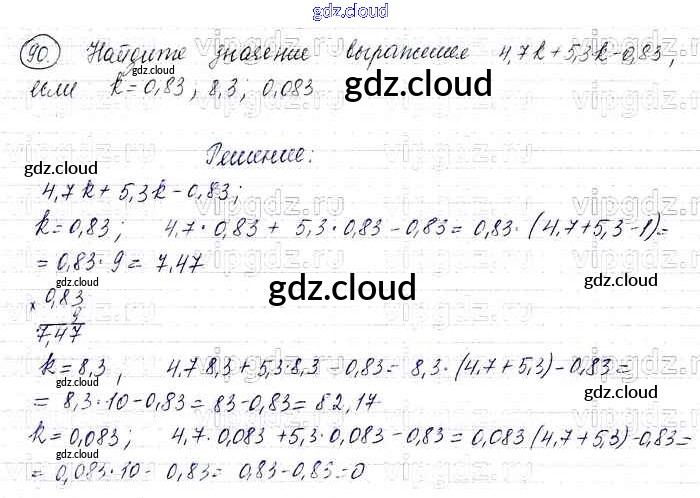 gdz.cloud
90. Найдите значение выражения 4,7k + 5,3k - 0,83,
gdz.cloud
если k = 0,83; 8,3; 0,083 gdz.cloud
Решение:
gdz.cloud
4,7k + 5,3k - 0,83;
k = 0,83; 4,7 · 0,83 + 5,3 · 0,83 - 0,83 = 0,83 · (4,7 + 5,3 - 1) =
= 0,83 · 9 = 7,47
gdz.cloud gdz.cloud gdz.cloud
× 0,83
9
7,47
k = 8,3, 4,7 8,3 + 5,3·8,3 - 0,83 = 8,3 · (4,7 + 5,3) - 0,83 =
= 8,3 · 10 - 0,83 = 83 - 0,83 = 82,17
gdz.cloud
k = 0,083; 4,7 · 0,083 + 5,3 · 0,083 - 0,83 = 0,083 (4,7 + 5,3) - 0,83 =
= 0,083 · 10 - 0,83 = 0,83 - 0,83 = 0